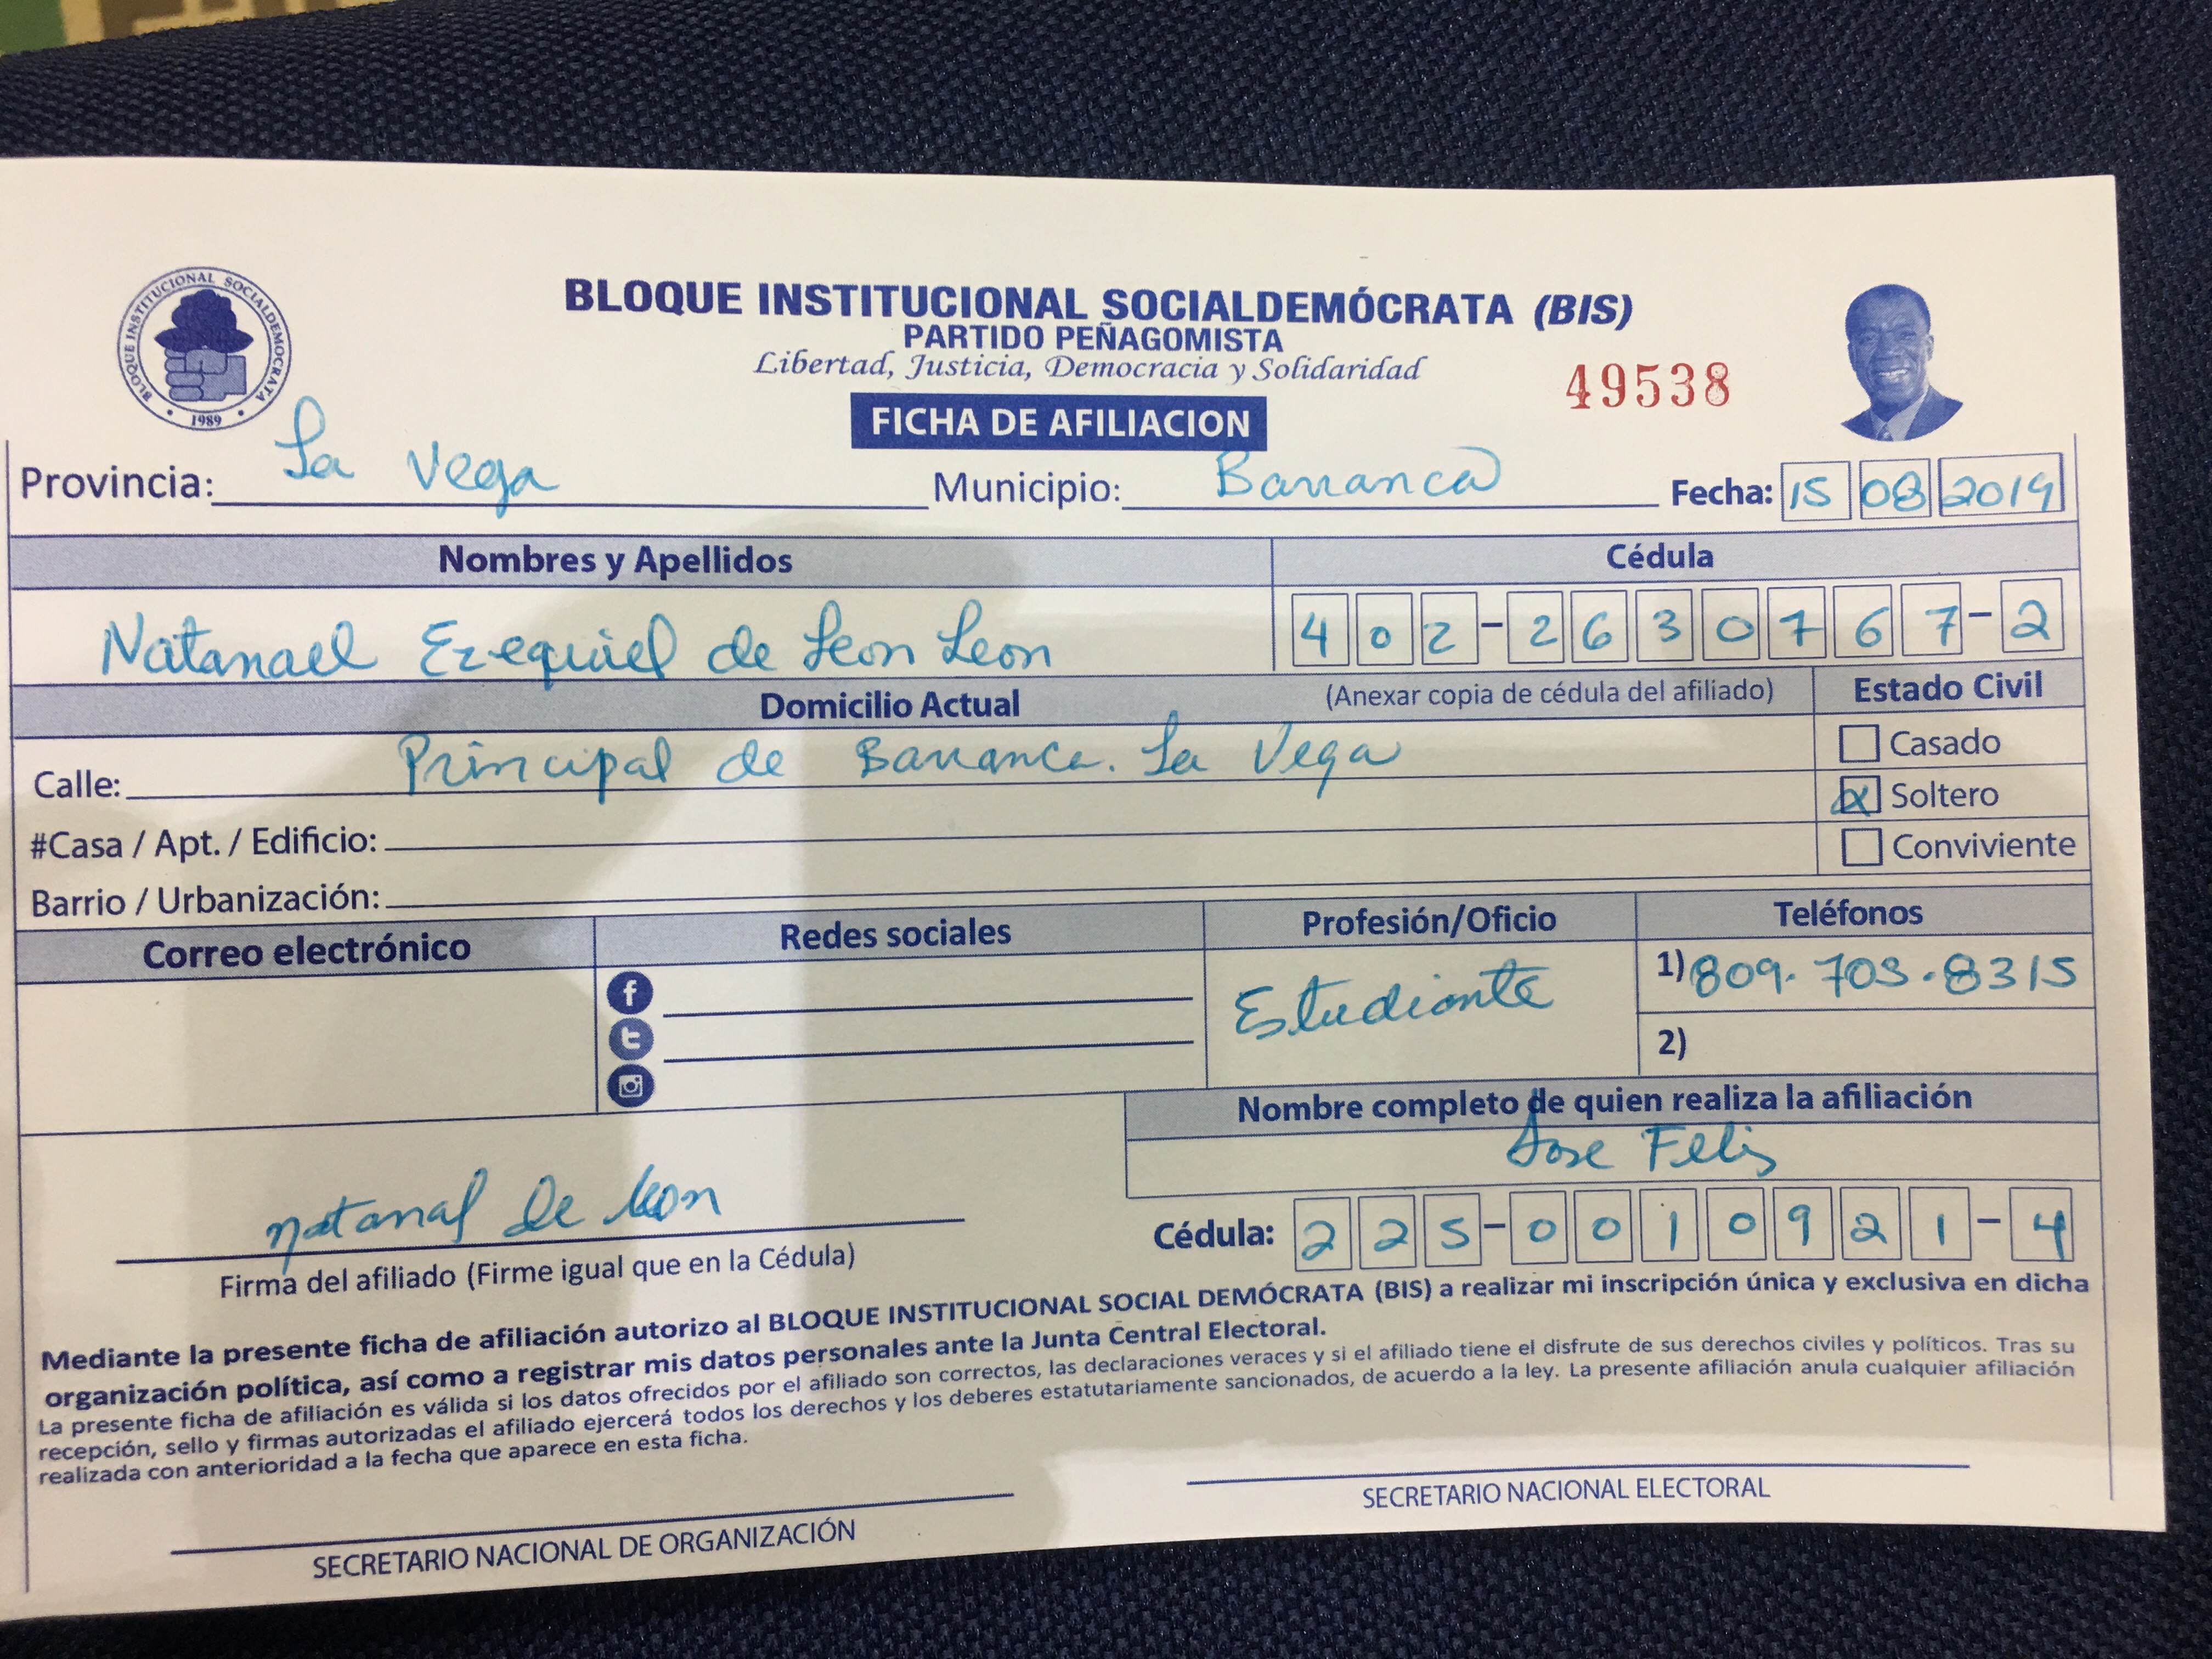 BLOQUE INSTITUCIONAL SOCIALDEMOCRATA
1989
BLOQUE INSTITUCIONAL SOCIALDEMÓCRATA (BIS)
PARTIDO PEÑAGOMISTA
Libertad, Justicia, Democracia y Solidaridad
49538
FICHA DE AFILIACION
Provincia: La Vega Municipio: Barranca Fecha: 15 08 2019
Nombres y Apellidos Cédula
Natanael Ezequiel de Leon Leon 402-2630767-2
Domicilio Actual (Anexar copia de cédula del afiliado) Estado Civil
Calle: Principal de Barranca. La Vega
Casado
X Soltero
#Casa / Apt. / Edificio:
Conviviente
Barrio / Urbanización:
Correo electrónico Redes sociales Profesión/Oficio Teléfonos
f
t
Estudiante
1) 809. 703.8315
2)
Nombre completo de quien realiza la afiliación
Jose Felis
natanal De leon
Cédula: 225-0010921-4
Firma del afiliado (Firme igual que en la Cédula)
Mediante la presente ficha de afiliación autorizo al BLOQUE INSTITUCIONAL SOCIAL DEMÓCRATA (BIS) a realizar mi inscripción única y exclusiva en dicha
organización política, así como a registrar mis datos personales ante la Junta Central Electoral.
La presente ficha de afiliación es válida si los datos ofrecidos por el afiliado son correctos, las declaraciones veraces y si el afiliado tiene el disfrute de sus derechos civiles y políticos. Tras su
recepción, sello y firmas autorizadas el afiliado ejercerá todos los derechos y los deberes estatutariamente sancionados, de acuerdo a la ley. La presente afiliación anula cualquier afiliación
realizada con anterioridad a la fecha que aparece en esta ficha.
SECRETARIO NACIONAL DE ORGANIZACIÓN
SECRETARIO NACIONAL ELECTORAL